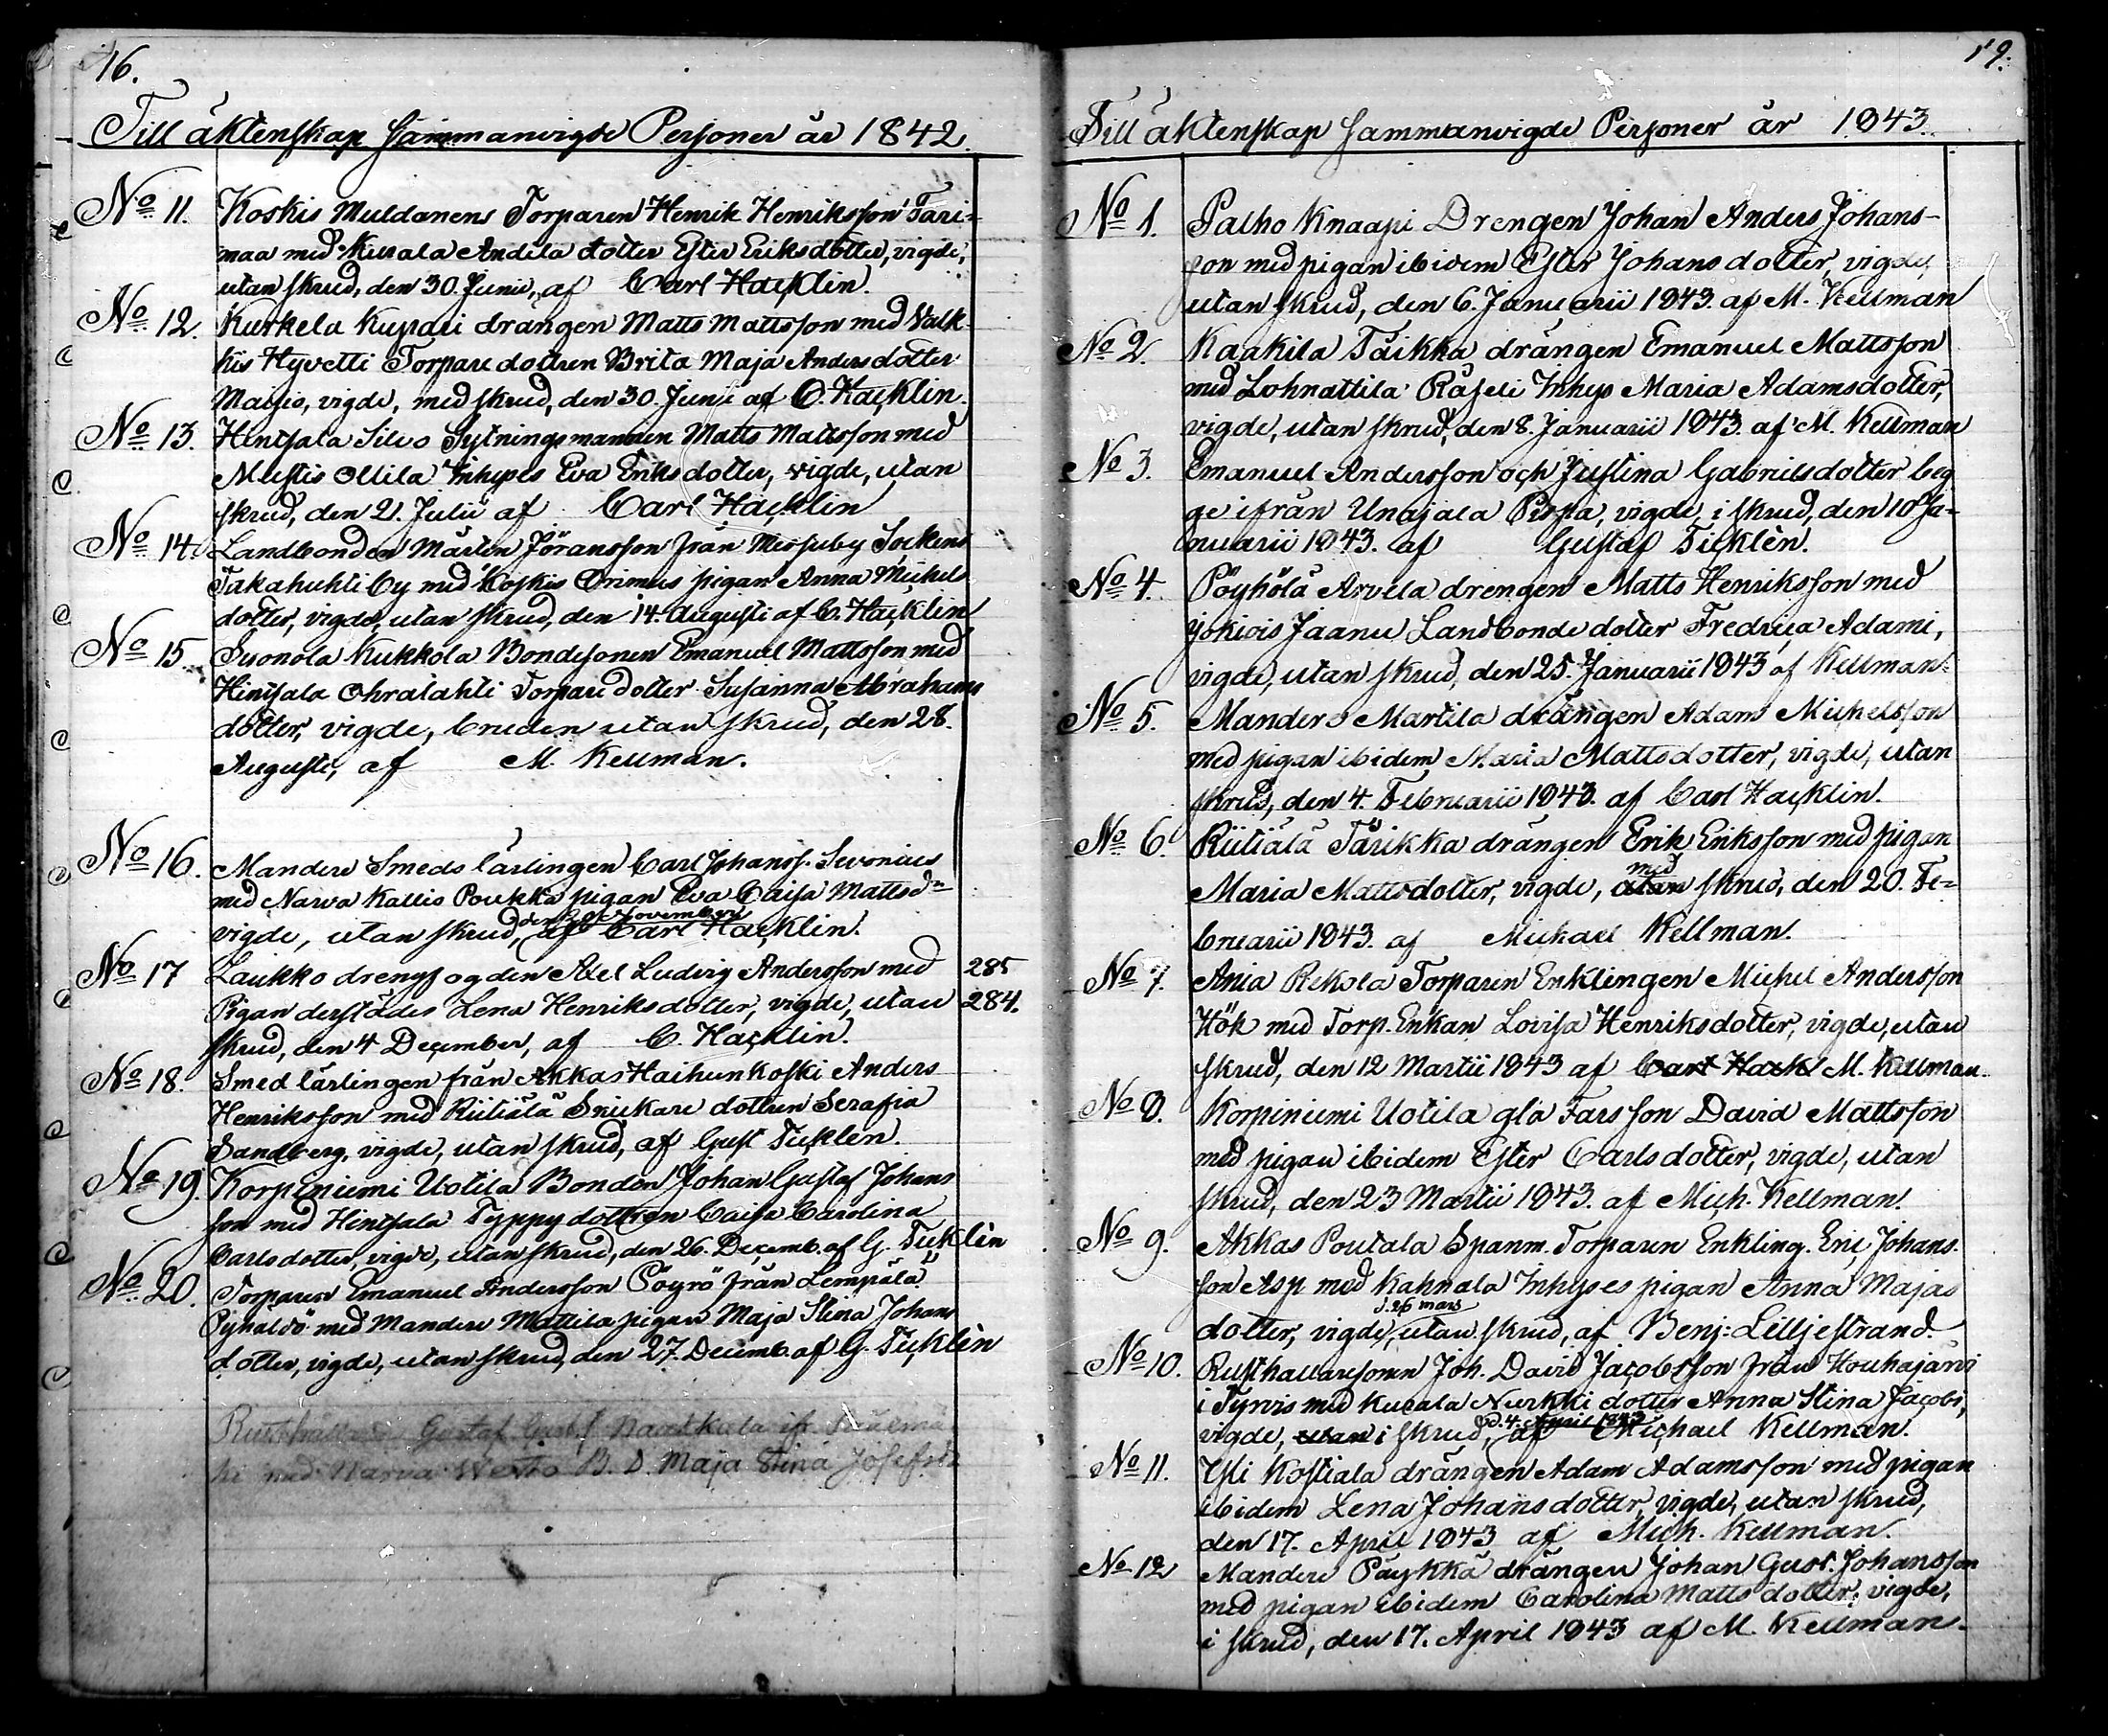 16.
Till äktenskap sammanvigde Personer år 1842.
No 11. Koskis Muldanens Torparen Henrik Henriksson Tari-
maa med Kurala Andela dotter Ester Eriksdotter, vigde,
utan skrud, den 30. Junii, af Carl Hacklin.
No 12. Kurkela Kuppari drängen Matts Mattsson med Valk-
kis Hyvetti Torpare dottren Brita Maja Andersdotter
vigde, med skrud, den 30. Junii af C. Hacklin.
No 13. Hentsala Silvo Sytningsmannen Matts Mattsson med
Mustis Ollila Inhyses Eva Eriksdotter, vigde, utan
skrud, den 21. Julii af Carl Hacklin
No 14. Landbonden Mårten Jöransson från Messuby Sockens
Takahuhti by med Koskis Orimus pigan Anna Michels
dotter, vigde, utan skrud, den 14. Augusti af C. Hacklin
No 15. Suonola Kukkola Bondesonen Emanuel Mattsson med
Hintsala Ohralahti Torpare dotter Susanna Abrahams
dotter, vigde, bruden utan skrud, den 28.
Augusti, af M. Kellman.
No 16. Mandere Smeds lärlingen Carl Johanss. Sevonius
med Narva Kallis Poukka pigan Eva Caisa Mattsdr
den 20 November
vigde, utan skrud, af Carl Hacklin.
No 17 Laukko drengsogden Axel Ludvig Andersson med 285
Pigan derstädes Lena Henriksdotter, vigde, utan 284.
skrud, den 4 December, af C. Hacklin.
No 18. Smed lärlingen från Akkas Haihunkoski Anders
Henriksson med Riitiälä Snickare dottren Serafia
Sandberg, vigde, utan skrud, af Gust Ticklén.
No 19. Korpiniemi Uotila Bonden Johan Gustaf Johans
son med Hintsala Typpy dottren Caisa Carolina
Carlsdotter, vigde, utan skrud, den 26. Decemb. af G. Ticklèn
No 20. Torparen Emanuel Andersson Pöyrö från Lempälä
med Mandere Mattila pigan Maja Stina Johans
dotter, vigde, utan skrud, den 27. Decemb. af G. Ticklèn
Rusthållaren Gustaf Gust.s
med Narva B. D. Maja Stina Josefsd.
19.
Till äktenskap sammanvigde Personer år 1843.
No 1. Palho Knaapi Drengen Johan Anders Johans-
son med pigan ibidem Ester Johansdotter, vigde,
utan skrud, den 6. Januarii 1843. af M. Kellman
No 2. Kaakila Täikkä drängen Emanuel Mattsson
med Lohnattila Räfeli Inhys Maria Adamsdotter,
vigde, utan skrud, den 8. Januarii 1843. af M. Kellman
No 3. Emanuel Andersson och Justina Gabrielsdotter beg
ge ifrån Unajala Pispa, vigde, i skrud, den 10 Ja-
nuarii 1843. af Gustaf Ticklèn.
No 4. Pöyhölä Arvela drengen Matts Henriksson med
Jokiois Jaanu Landbonde dotter Fredrica Adami,
vigde, utan skrud, den 25. Januarii 1843 af Kellman
No 5. Mandere Martila drängen Adam Michelsson
med pigan ibidem Maria Mattsdotter, vigde, utan
skrud, den 4. Februarii 1843. af Carl Hacklin.
No 6. Riitiälä Tärikkä drängen Erik Eriksson med pigan
med
Maria Mattsdotter, vigde, utan skrud, den 20. Fe-
bruarii 1843. af Michael Kellman.
No 7. Ania Rekola Torparen Enklingen Michel Andersson
Hök med Torp. Enkan Lovisa Henriksdotter, vigde, utan
skrud, den 12 Martii 1843 af Carl Hack M. Kellman.
No 8. Korpiniemi Uotila gla Farsson David Mattsson
med pigan ibidem Ester Carlsdotter, vigde, utan
skrud, den 23 Martii 1843. af Mich. Kellman.
No 9. Akkas Poutala Spanm. Torparen Enkling. Eric Johans
son Asp med Kahnala Inhyses pigan Anna Majas
d. 26 mars
dotter, vigde, utan skrud, af Benj: Lilljestrand.
No 10. Rusthållaresonen Joh. David Jacobsson från Houhajärvi
i Tyrvis med Kurala Nurkki dotter Anna Stina Jacobi,
d. 4. April 1843
vigde, utan i skrud, af Michael Kellman.
No 11. Ylli Kostiala drängen Adam Adamsson med pigan
ibidem Lena Johansdotter, vigde, utan skrud,
den 17. April 1843 af Mich. Kellman.
No 12 Mandere Päykkä drängen Johan Gust. Johansson
med pigan ibidem Carolina Mattsdotter, vigde,
i skrud, den 17. April 1843 af M. Kellman.